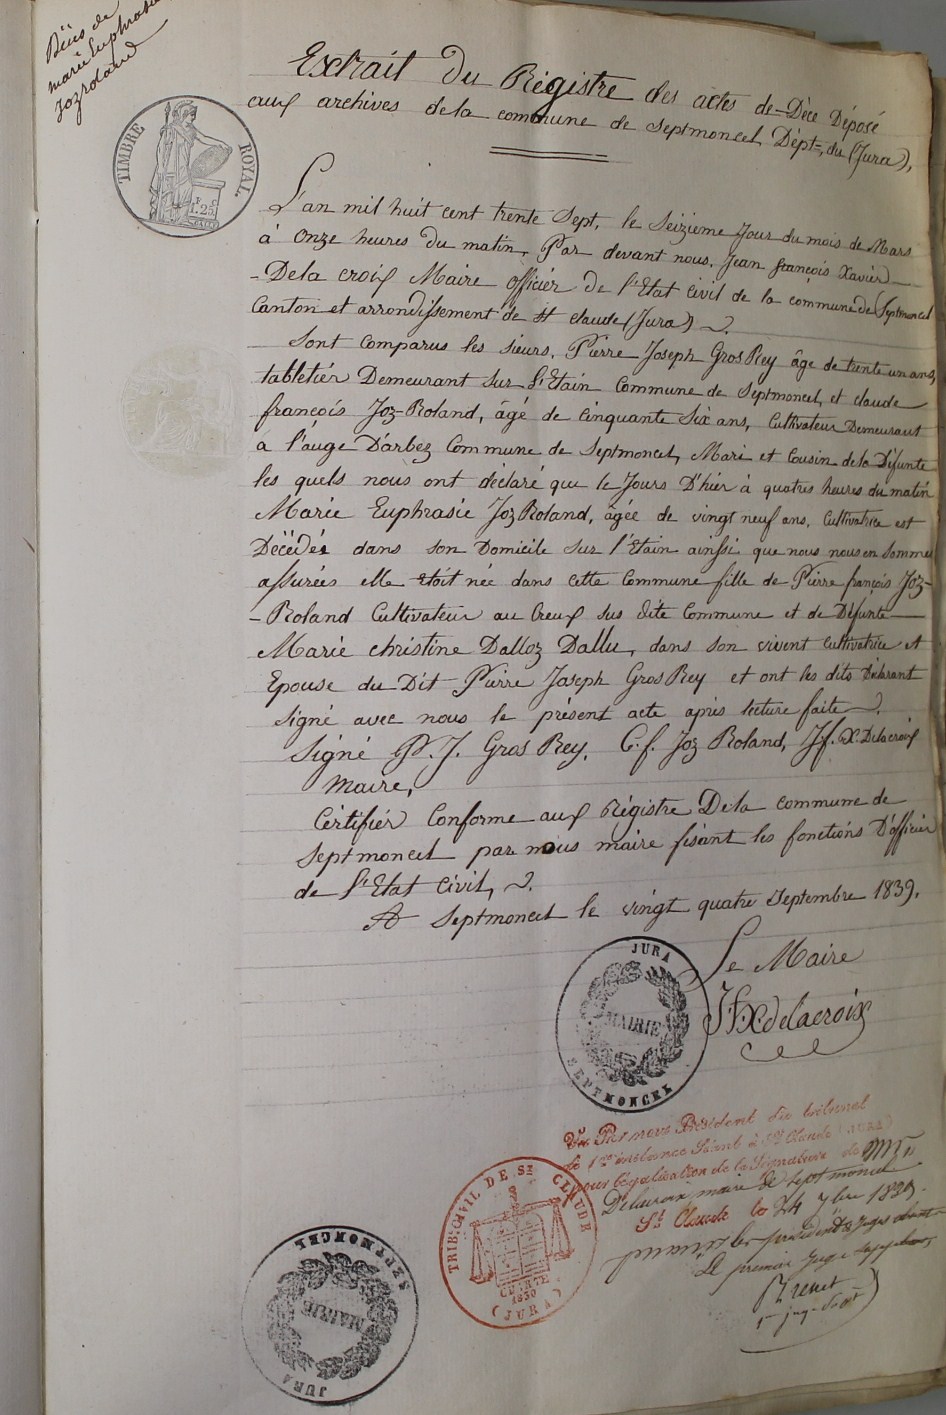 Décés de
marie Euphrasie
Jozroland
Extrait Du Régistre des actes de Décé Déposé
aux archives de la commune de Septmoncel, Dépt=, du (Jura),
TIMBRE ROYAL.
1.25
L'an mil huit cent trente Sept, le Seizieme Jour du mois de Mars
à Onze heures du matin, Par devant nous, Jean françois Xavier
-Dela croix Maire officier de l'Etat Civil de la commune de Septmoncel
Canton et arrondissement de St claude (Jura)
Sont comparus les sieurs, Pierre Joseph Gros Rey âge de trente un ans,
tabletiér Demeurant Sur l'Etain Commune de Septmoncel, et claude
françois Joz-Roland, âgé de cinquante Six ans, Cultivateur Demeurant
a l'auge D'arbez Commune de Septmoncel, Mari et Cousin de la Défunte
les quels nous ont déclaré que le Jours D'hier à quatres heures du matin
Marie Euphrasie Joz Roland, âgée de vingt neuf ans, Cultivatrice est
Décédés dans son Domicile Sur l'Etain ainssi que nous nous en Sommes
assurées elle étoit née dans cette Commune fille de Pierre françois Joz-
-Roland Cultivateur au Creux sus dite Commune et de Défunte
Marie christine Dalloz Dallu, dans son vivent cultivatrice et
Epouse du Dit Pierre Joseph Gros Rey et ont les dits Déclarant
Signé avec nous le présent acte après lecture faite
Signé P. J. Gros Rey, C. f. Joz Roland, J. f. X. Delacroix
Maire,
Cértifiér Conforme aux Régistre Dela commune de
Septmoncel par nous maire fisant les fonctions D'officier
de l'Etat Civil,
A Septmoncel le vingt quatre Septembre 1839.
Le Maire
JFX delacroix
JURA
MAIRIE
SEPTMONCEL
Vu Par nous Président du tribunal
de 1ere instance Séant à St Claude (JURA)
pour légalisation de la Signature de Mr
Delacroix maire de Septmoncel
St Claude le 24 7bre 1839
Le premier Juge
TRIB: CIVIL DE ST CLAUDE
CHARTE
1830
(JURA)
SEPTMONCEL
MAIRIE
JURA